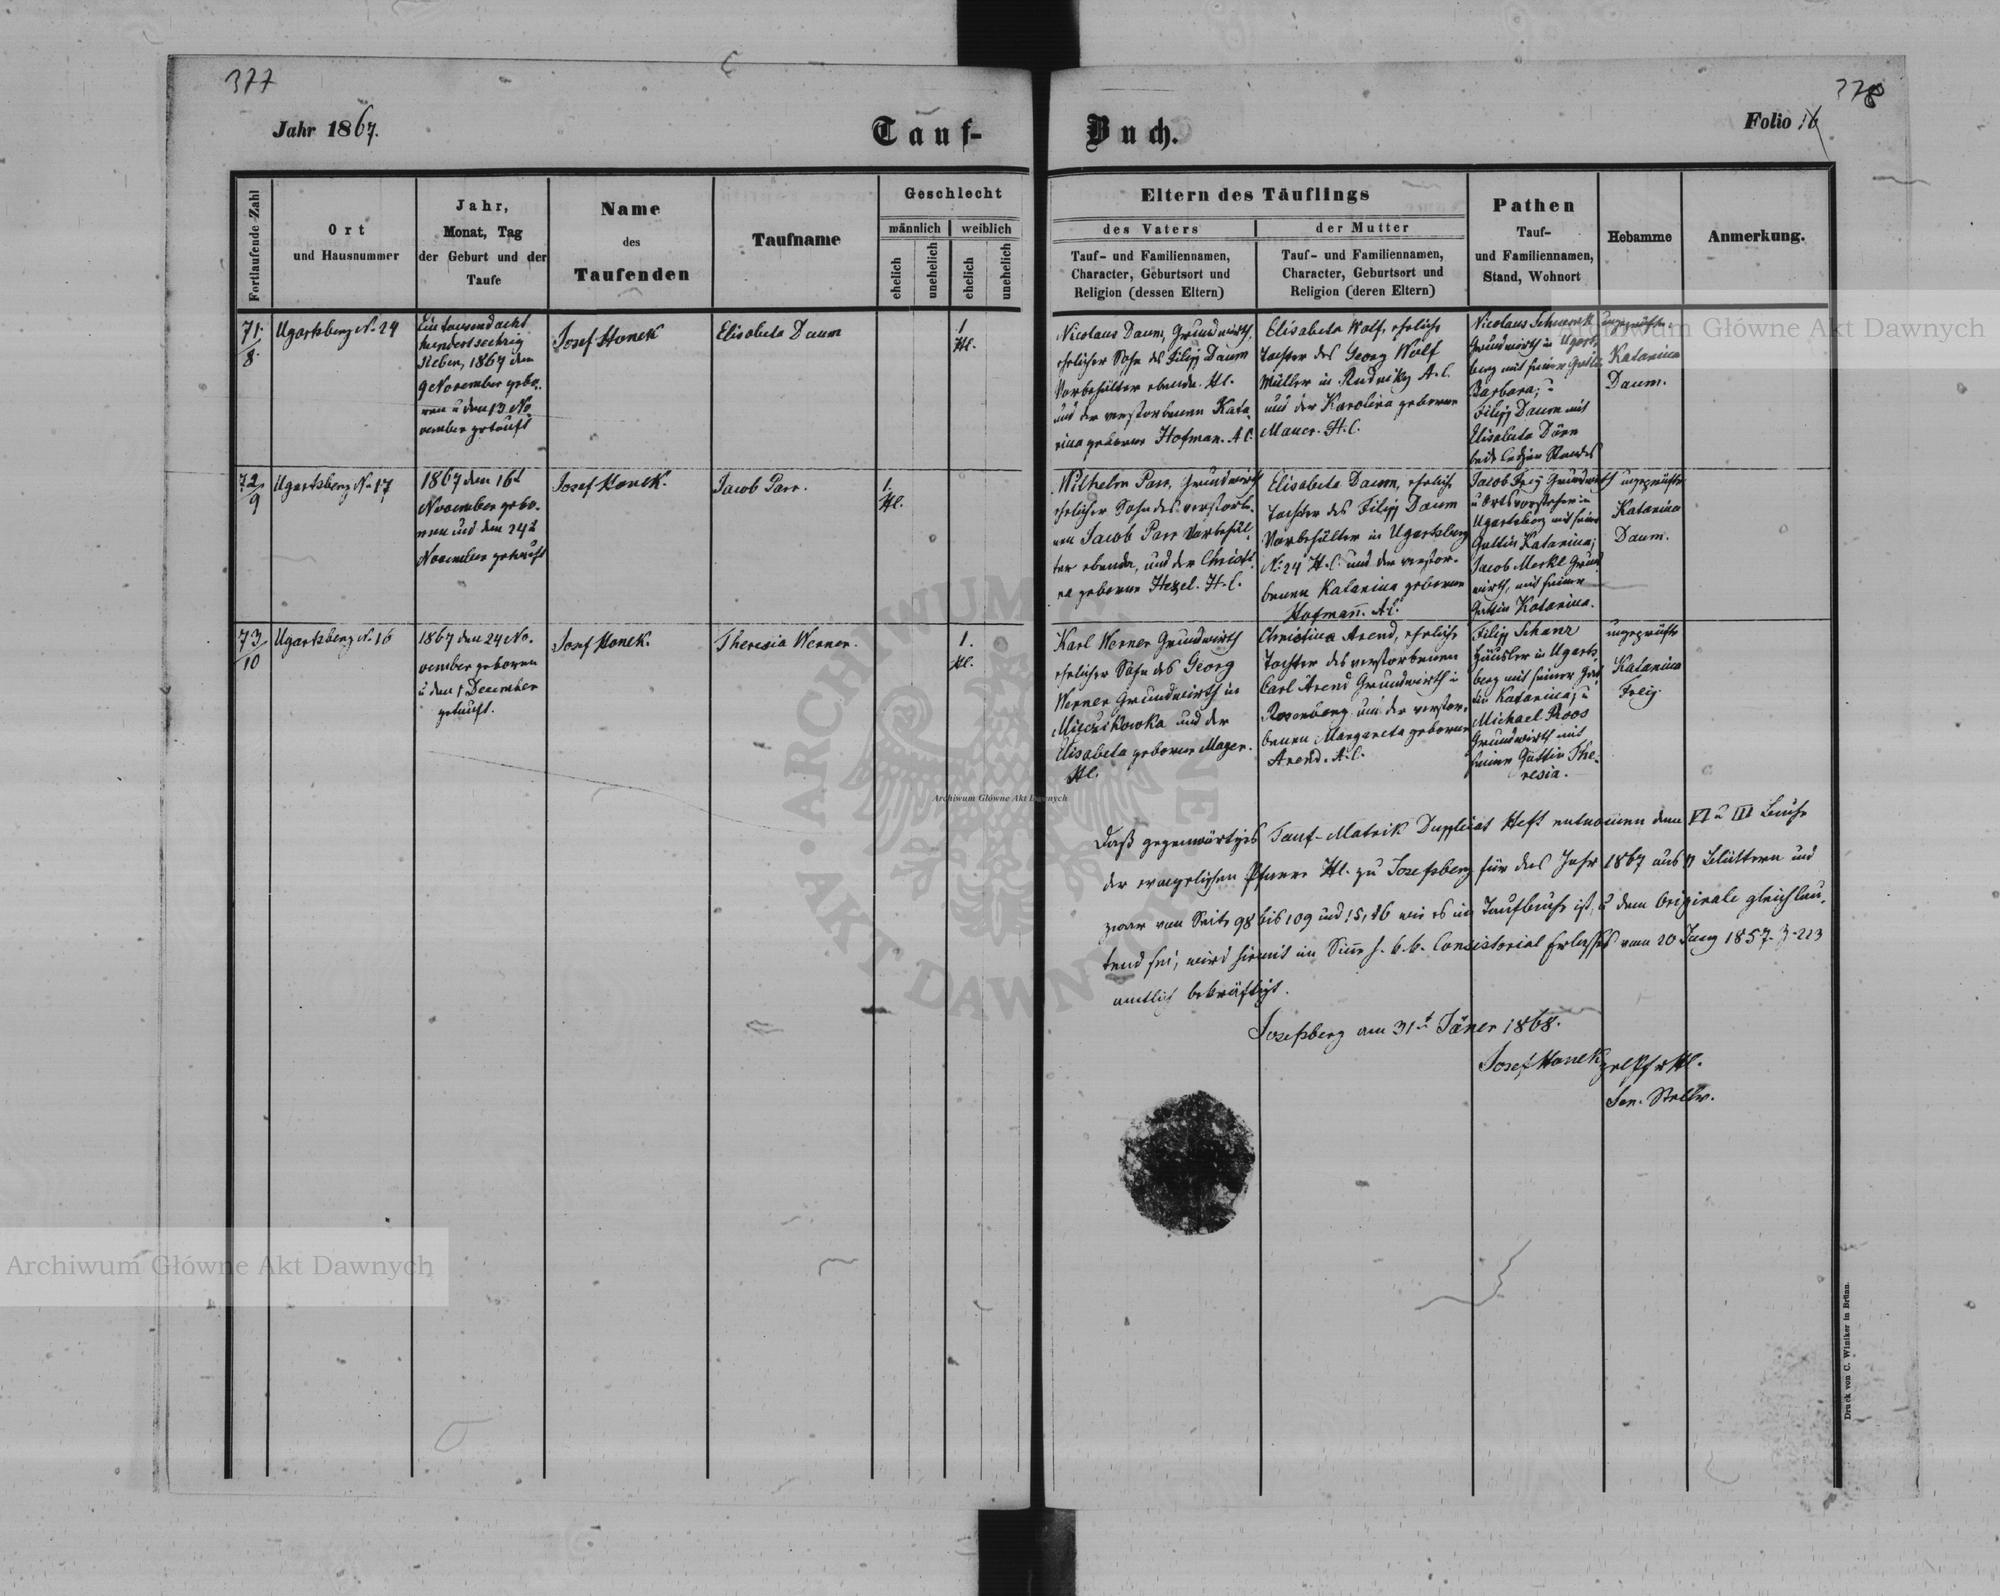 377
378
Jahr 1867.
Tauf-
Buch.
Folio 16
Fortlaufende Zahl
Ort
und Hausnummer
Jahr,
Monat, Tag
der Geburt und der
Taufe
Name
des
Taufenden
Taufname
Geschlecht
männlich
weiblich
ehelich
unehelich
ehelich
unehelich
Eltern des Täuflings
des Vaters
der Mutter
Tauf- und Familiennamen,
Character, Geburtsort und
Religion (dessen Eltern)
Tauf- und Familiennamen,
Character, Geburtsort und
Religion (deren Eltern)
Pathen
Tauf-
und Familiennamen,
Stand, Wohnort
Hebamme
Anmerkung.
71.
8.
Ugartsberg N. 24
Ein tausend acht
hundert sechzig
sieben, 1867 den
9 November gebo-
ren u den 13 No
vember getauft
Josef Honek
Elisabeta Daum
1
Hl.
Nicolaus Daum, Grundwirth,
ehelicher Sohn des Filipp Daum
Vorbehälter ebenda. Hl.
und der verstorbenen Kata
rina geborne Hofman. A.C.
Elisabeta Wolf, eheliche
Tochter des Georg Wolf
Müller in Rudniky A.C.
und der Karolina geborne
Mauer. H.C.
Nicolaus Schwenk
Grundwirth in Ugarts
berg mit seiner Gattin
Barbara; u
Filipp Daum mit
Elisabeta Dörn
beide ledigen Standes
ungeprüfte
Katarina
Daum.
72
9
Ugartsberg N. 17
1867 den 16t
November gebo-
ren und den 24t
November getauft
Josef Honek.
Jacob Parr.
1.
Hl.
Wilhelm Parr, Grundwirth
ehelicher Sohn des verstorbe-
nen Jacob Parr Vorbehäl-
ter ebenda, und der Christi
na geborne Hezel. H.C.
Elisabeta Daum, eheliche
Tochter des Filipp Daum
Vorbehälter in Ugartsberg
N. 24 H.C. und der verstor-
benen Katarina geborene
Hofmann. A.C.
Jacob Freig Grundwirth
u Ortsvorsteher in
Ugartsberg mit seiner
Gattin Katarina;
Jacob Merkl Grund
wirth, mit seiner
Gattin Katarina.
ungeprüfte
Katarina
Daum.
73
10
Ugartsberg N. 16
1867 den 24 No-
vember geboren
u den 1 December
getauft.
Josef Honek.
Theresia Werner.
1.
Hl.
Karl Werner Grundwirth
ehelicher Sohn des Georg
Werner Grundwirth in
und der
Elisabeta geborne Mager.
Hl.
Christina Arend, eheliche
Tochter des verstorbenen
Carl Arend Grundwirth in
Rosenberg und der verstor-
benen Margareta geborne
Arend. A.C.
Filipp Schanz
Häusler in Ugarts
berg mit seiner Gat
tin Katarina; u
Michael Roos
Grundwirth mit
seiner Gattin The-
resia.
ungeprüfte
Katarina
Freig.
Daß gegenwärtiges Tauf-Matrik Duplicat Heft entnommen dem VI u III Buche
der evangelischen Pfarre Hl. zu Josefsberg für das Jahr 1867 aus Blättern und
zwar von Seite 98 bis 109 und 15, 16 wie es im Taufbuche ist, u dem Originale gleichlau-
tend sei, wird hiemit im Sinne h. k.k. Consistorial Erlasses vom 20 Juny 1857. Z. 223
amtlich bekräftigt.
Josefsberg am 31t Jäner 1868.
Josef Honek
Sen. Stellv.
Druck von C. Winiker in Brünn.
Archiwum Główne Akt Dawnych
Archiwum Główne Akt Dawnych
Archiwum Główne Akt Dawnych
ARCHIWUM GŁÓWNE
AKT DAWNYCH